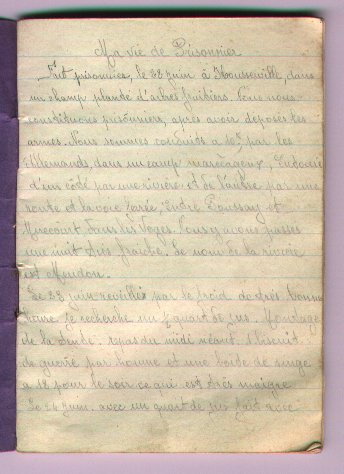 Ma vie de Prisonnier
Fait prisonnier, le 22 juin à Housseville, dans
un champ planté d'arbres fruitiers. Nous nous
constituons prisonniers, après avoir déposés les
armes. Nous sommes conduits a par les
Allemands, dans un camp marécageux,
d'un côté par une rivière et de l'autre par une
route et la voie ferrée, Entre Poussay et
Mirecourt dans les Voges. Nous y avons passés
une nuit très fraîche. Le nom de la rivière
est
Le 23 juin reveillés par le froid de très bonne
heure je recherche un quart de jus. Montage
de la tente. repas du midi néant. 1 biscuit
de guerre par homme et une boite de singe
a 18 pour le soir ce qui est très maigre
Le 24 juin. avec un quart de jus fait avec